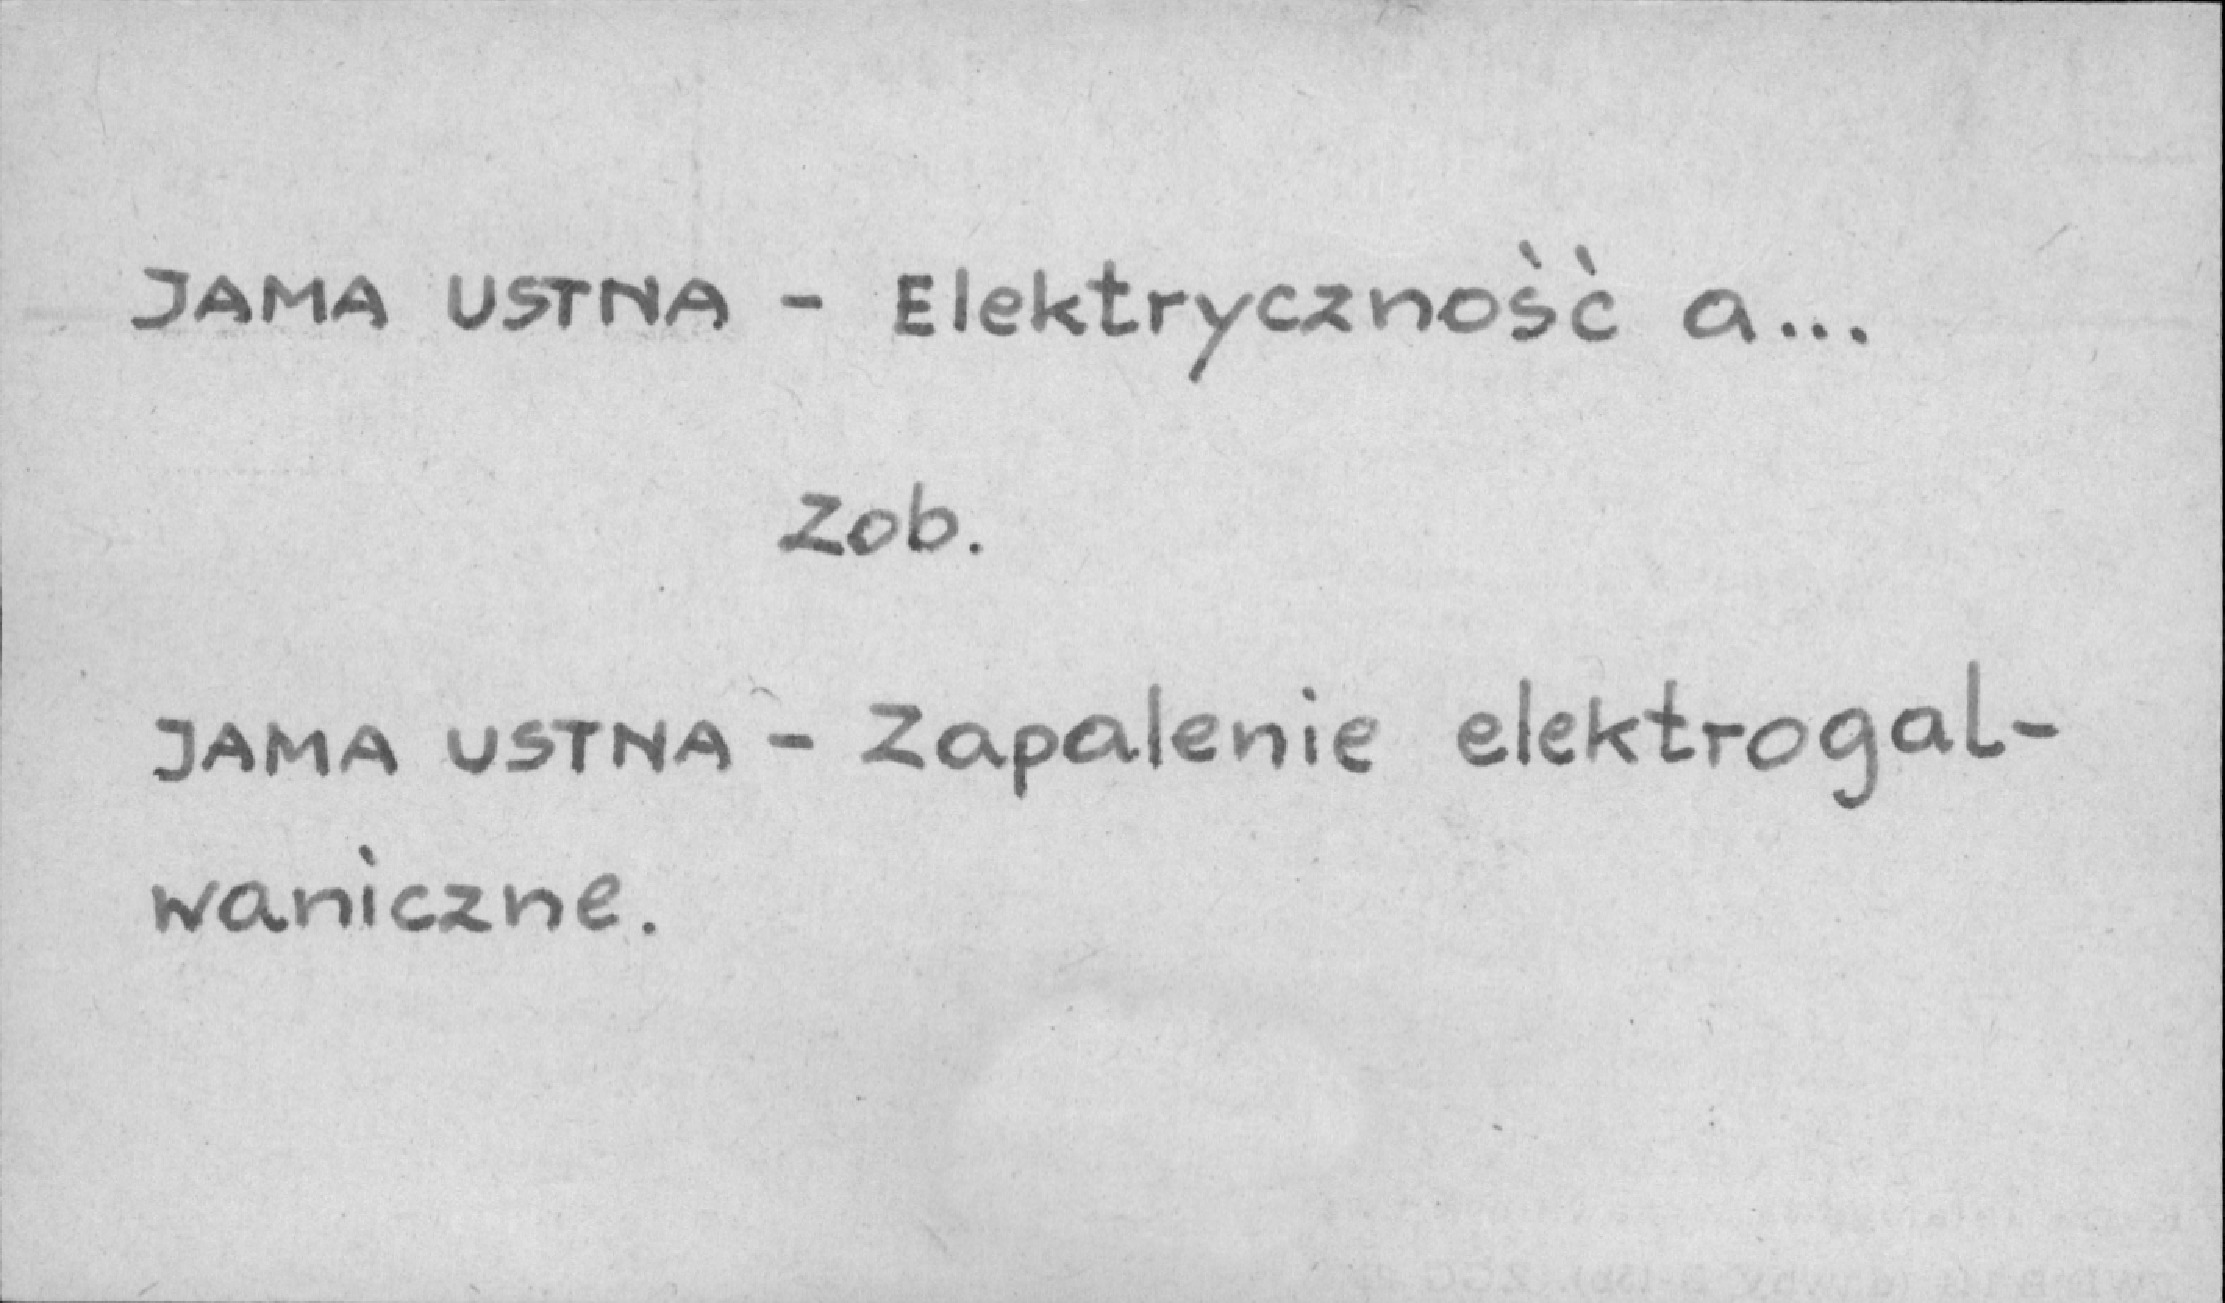 JAMA USTNA - Elektryczność a...
Zob.
JAMA USTNA - Zapalenie elektrogal-
waniczne.